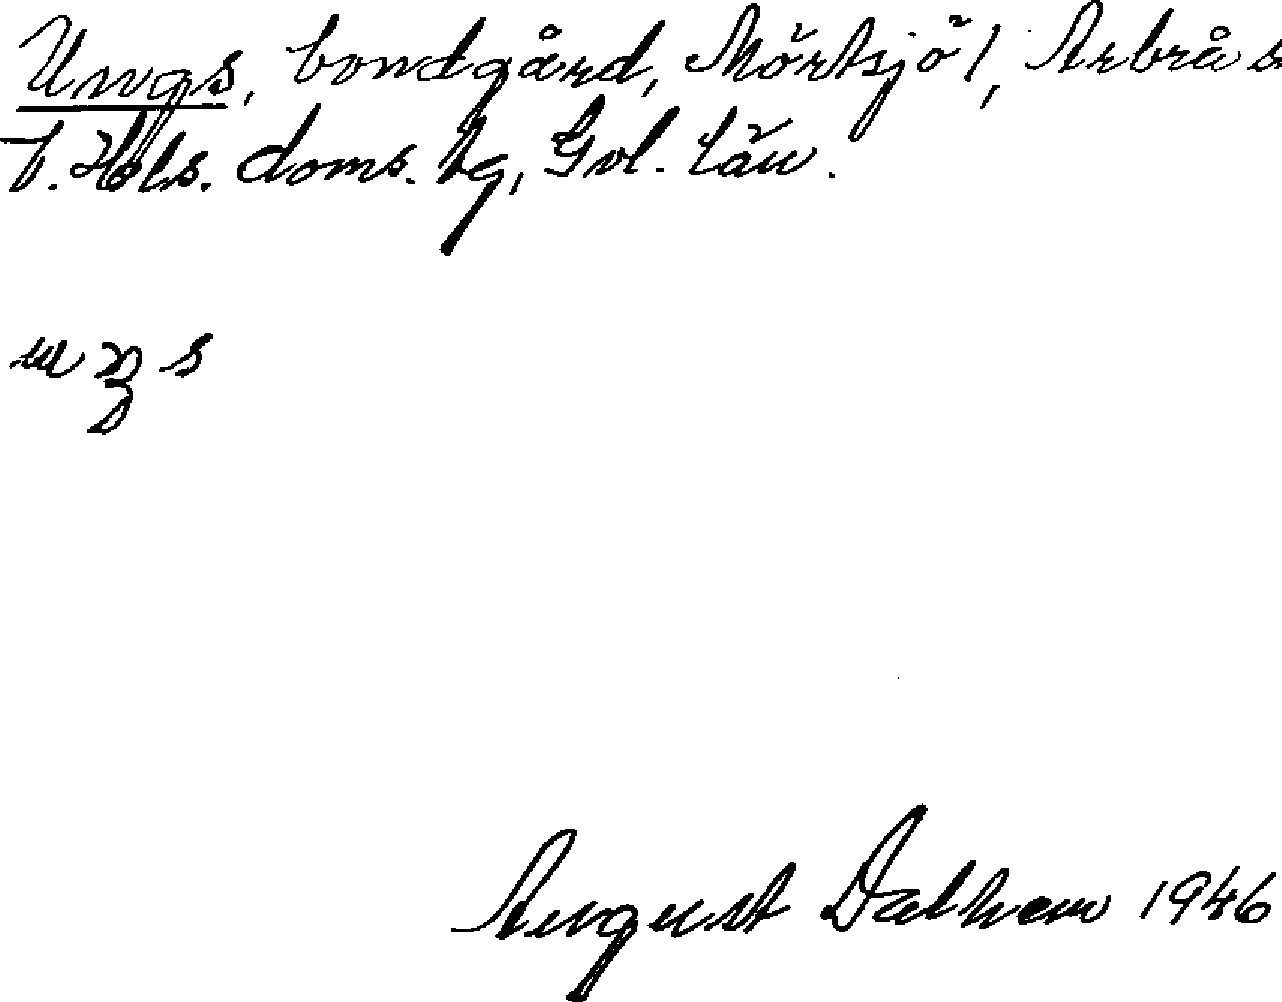 Ungs, bondgård, Mörtsjö l, Arbrå s
V. Hels. doms. hg, Gvl. län.
August Dalhem 1946